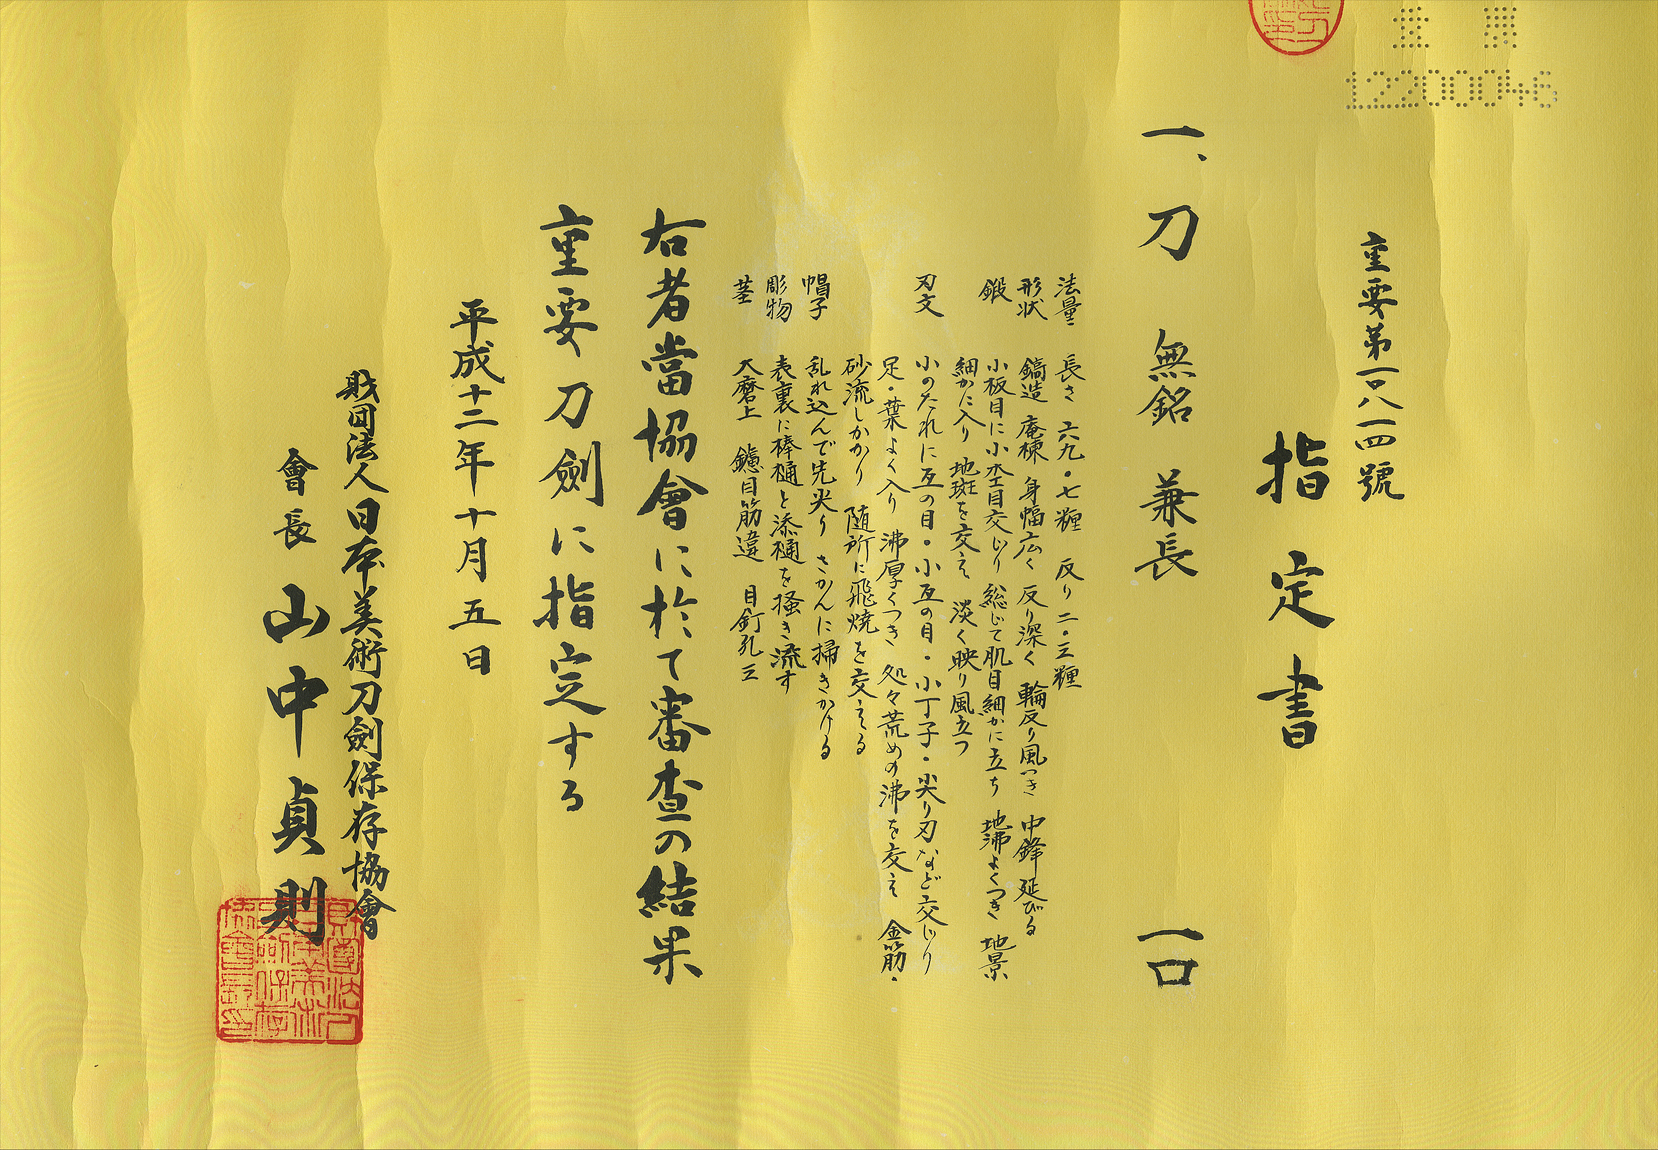 12200046
重要第一八一四號
指定書
一、刀 無銘 兼長 一口
法量 長さ 六九・七糎 反り 二・三糎
形状 鎬造 庵棟 身幅広く 反り深く 輪反り風つき 中鋒延びる
鍛 小板目に小杢目交じり 総じて肌目細かに立ち 地沸よくつき 地景
細かに入り 地斑を交え 淡く映り風立つ
刃文 小のたれに互の目・小互の目・小丁子・尖り刃など交じり
足・葉よく入り 沸厚くつき 処々荒めの沸を交え 金筋・
砂流しかかり 随所に飛焼を交える
帽子 乱れ込んで先尖り さかんに掃きかける
彫物 表裏に棒樋と添樋を掻き流す
茎 大磨上 鑢目筋違 目釘孔三
右者當協會に於て審査の結果
重要刀劍に指定する
平成十二年十月五日
財団法人日本美術刀劍保存協會
會長 山中貞則